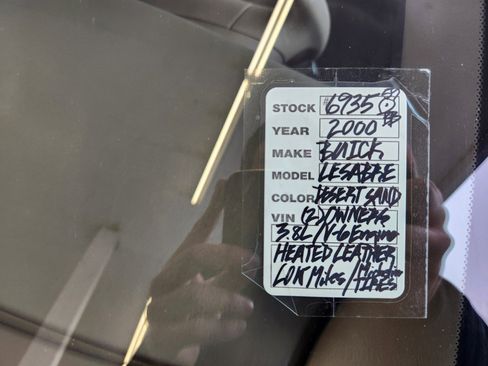 STOCK #6935
YEAR 2000
MAKE BUICK
MODEL LESABRE
COLOR DESERT SAND
VIN (2) OWNERS
3.8L/V-6 Engine
HEATED LEATHER
60K Miles/Michelin
TIRES